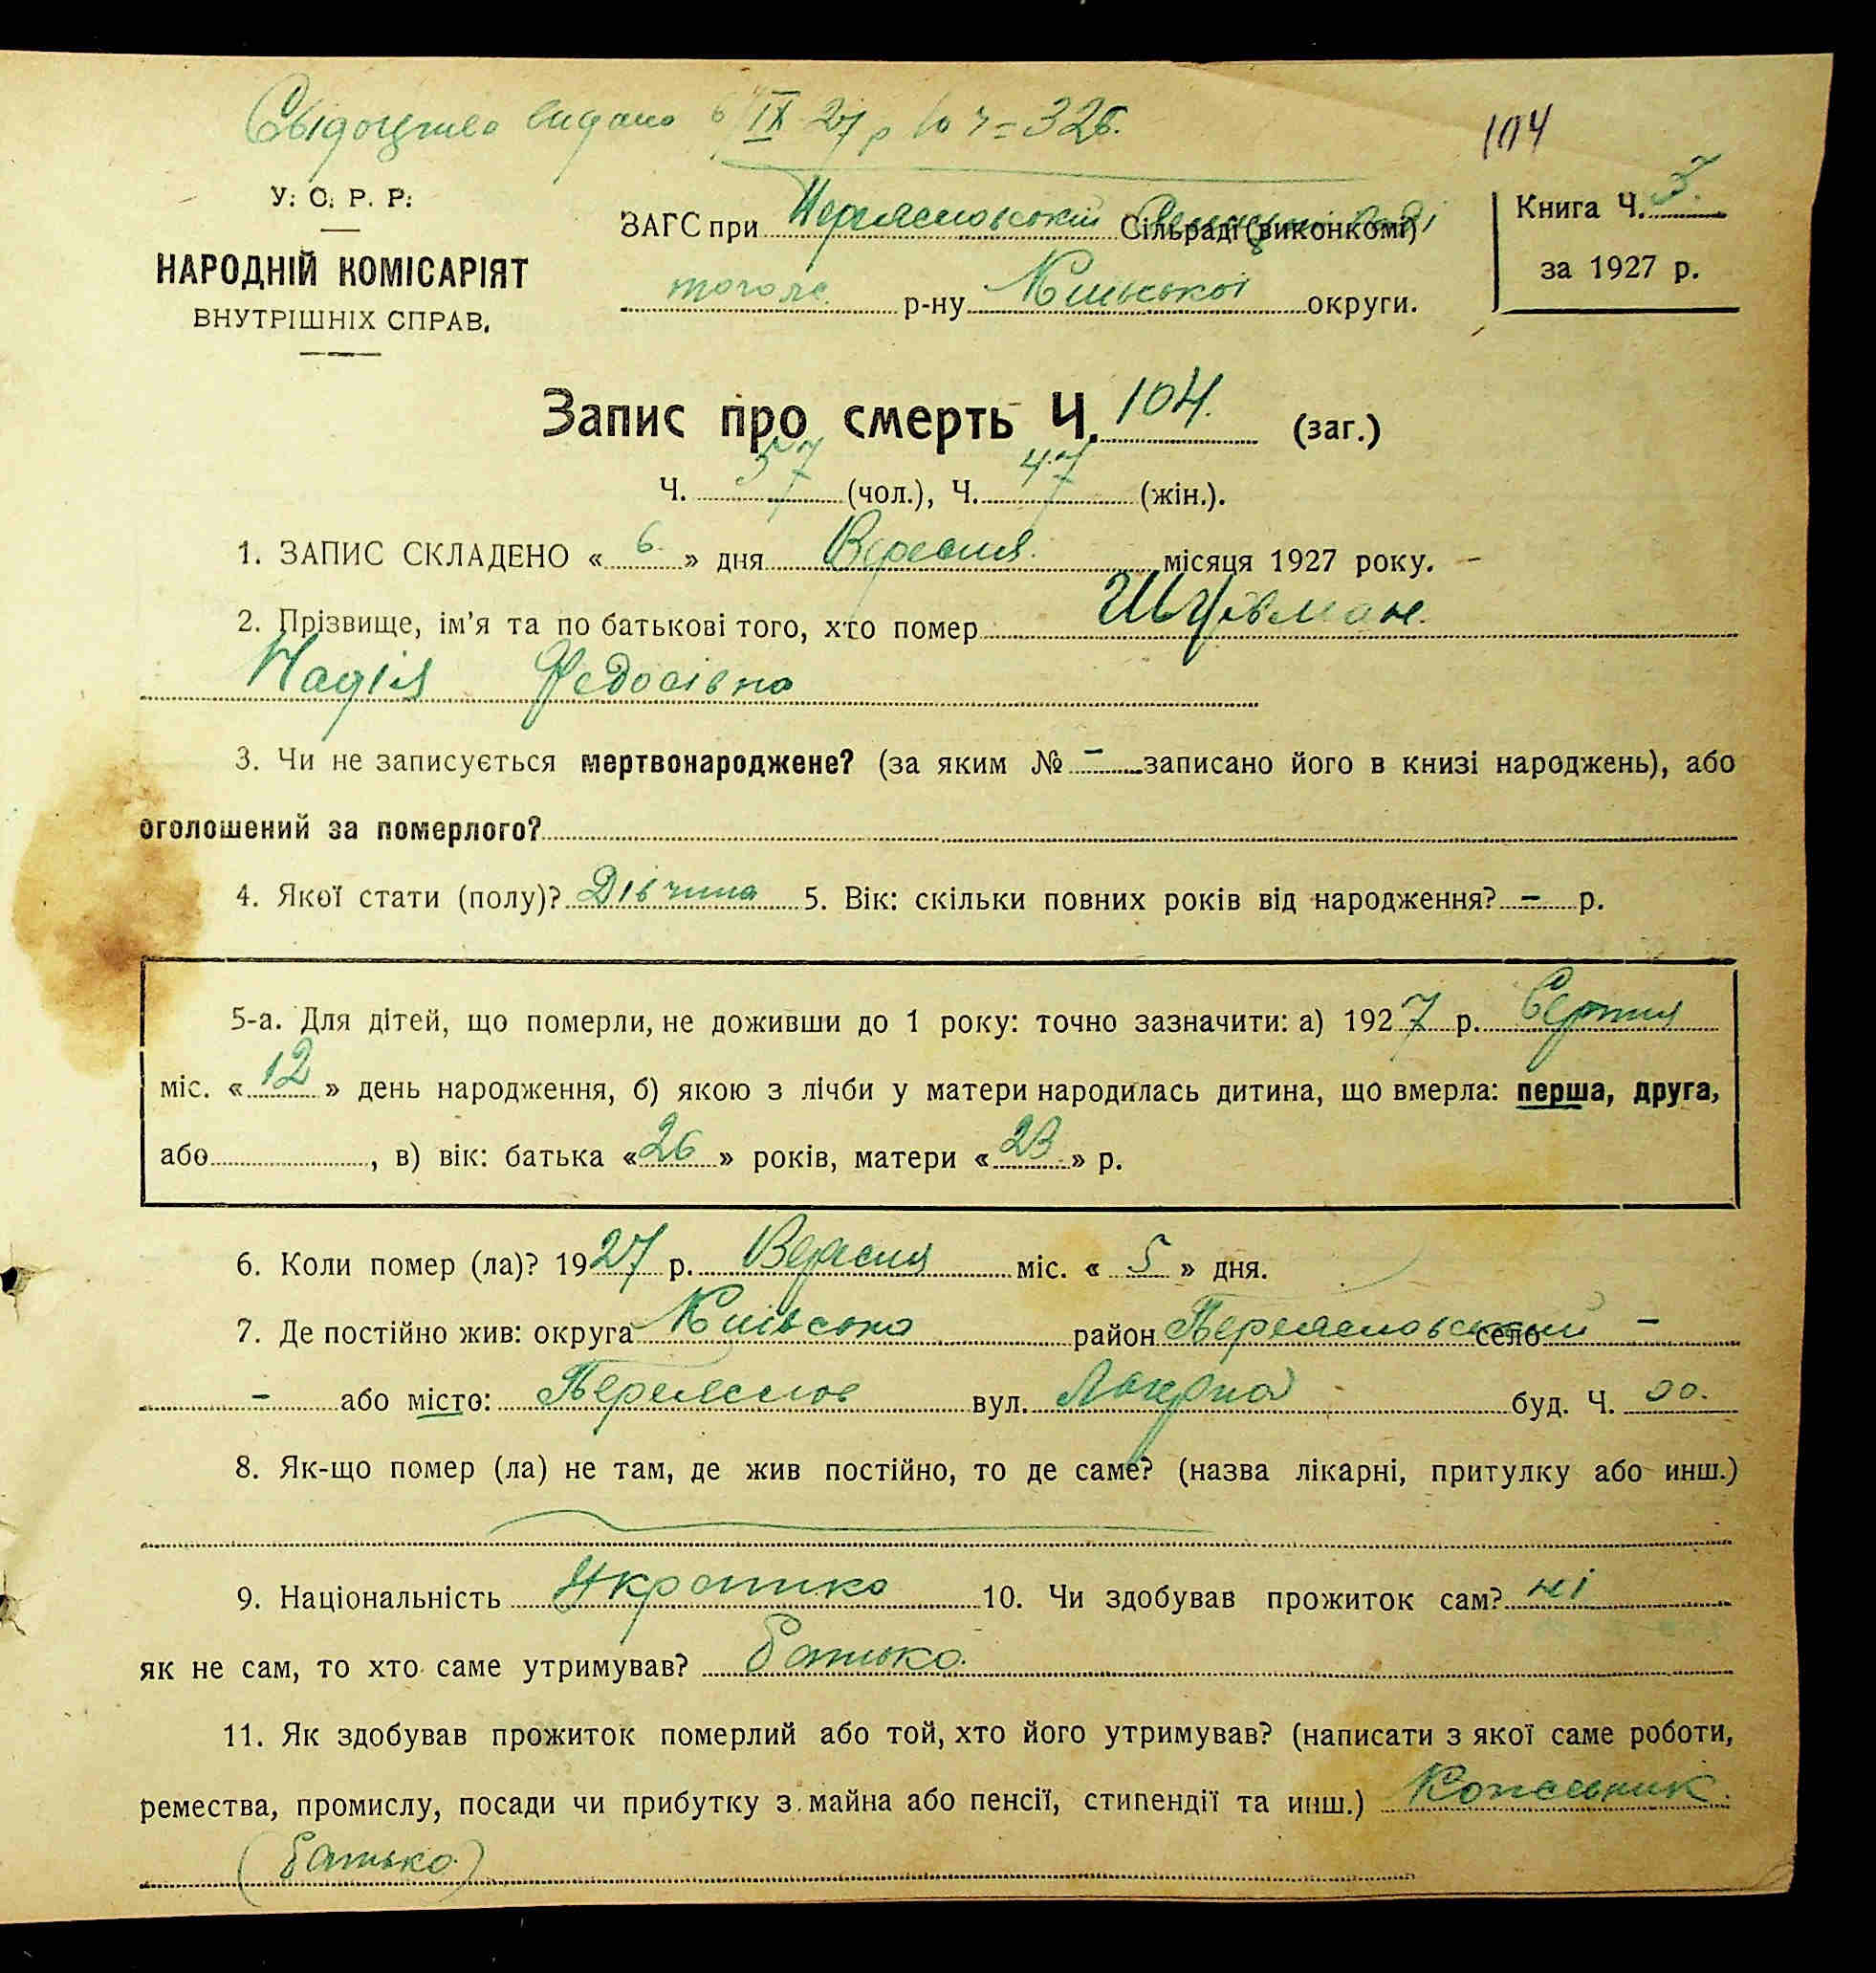 Свідоцтво видано 6/IX 27 р № 326.
104
У. С. Р. Р.
НАРОДНІЙ КОМІСАРІЯТ
ВНУТРІШНІХ СПРАВ.
ЗАГС при Переяславській Сільраді (виконкомі)
того ж р-ну Київської округи.
Книга Ч. 3
за 1927 р.
Запис про смерть Ч. 104. (заг.)
Ч. 57 (чол.), Ч. 47 (жін.).
1. ЗАПИС СКЛАДЕНО « 6 » дня Вересня місяця 1927 року.
2. Прізвище, ім'я та по батькові того, хто помер
Надія Федосівна
3. Чи не записується мертвонароджене? (за яким № – записано його в книзі народжень), або
оголошений за померлого?
4. Якої стати (полу)? Дівчина 5. Вік: скільки повних років від народження? – р.
5-а. Для дітей, що померли, не доживши до 1 року: точно зазначити: а) 1927 р. Серпня
міс. « 12 » день народження, б) якою з лічби у матери народилась дитина, що вмерла: перша, друга,
або , в) вік: батька « 26 » років, матери « 23 » р.
6. Коли помер (ла)? 1927 р. Вересня міс. « 5 » дня.
7. Де постійно жив: округа Київська район Переяславський село –
– або місто: Переяслов вул. буд. Ч. 00.
8. Як-що помер (ла) не там, де жив постійно, то де саме? (назва лікарні, притулку або инш.)
9. Національність Укр 10. Чи здобував прожиток сам? ні
як не сам, то хто саме утримував? батько.
11. Як здобував прожиток померлий або той, хто його утримував? (написати з якої саме роботи,
ремества, промислу, посади чи прибутку з майна або пенсії, стипендії та инш.)
(батько)